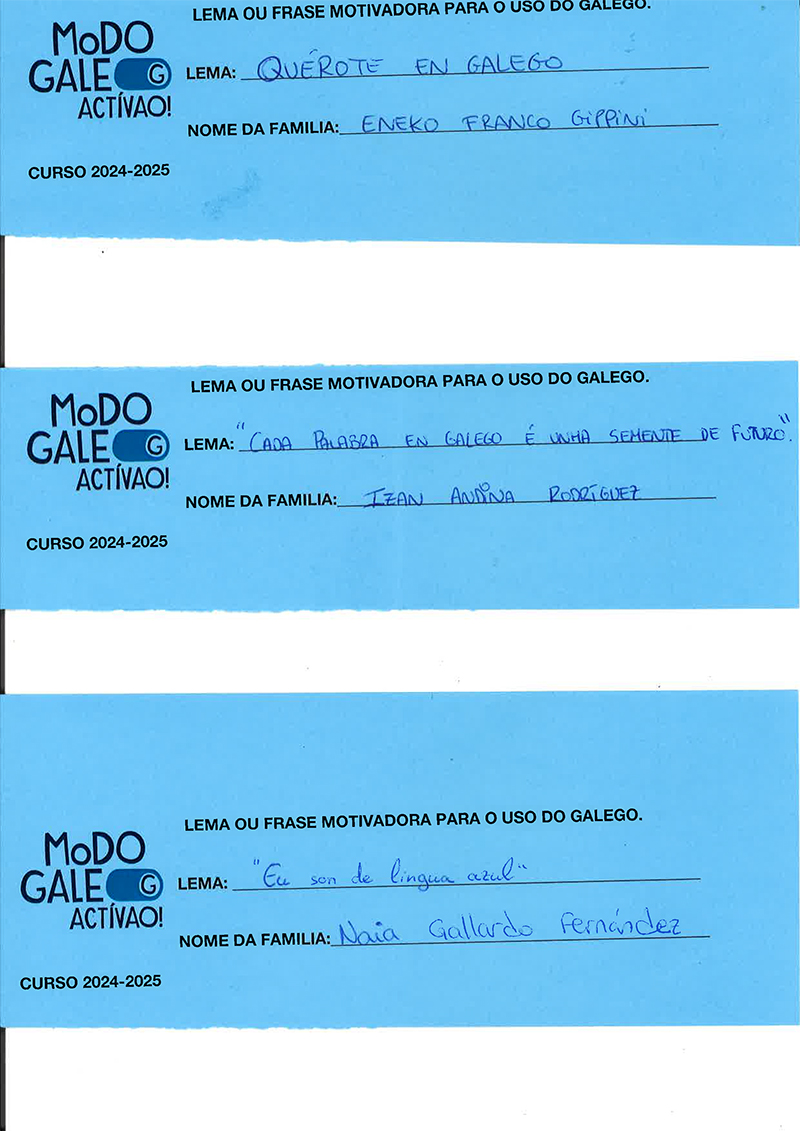 LEMA OU FRASE MOTIVADORA PARA O USO DO GALEGO.
MoDO
GALEGO
ACTÍVAO!
LEMA: QUÉROTE EN GALEGO
NOME DA FAMILIA: ENEKO FRANCO GIPPINI
CURSO 2024-2025
LEMA OU FRASE MOTIVADORA PARA O USO DO GALEGO.
MoDO
GALEGO
ACTÍVAO!
LEMA: "CADA PALABRA EN GALEGO É UNHA SEMENTE DE FUTURO".
NOME DA FAMILIA: IZAN ANDINA RODRÍGUEZ
CURSO 2024-2025
LEMA OU FRASE MOTIVADORA PARA O USO DO GALEGO.
MoDO
GALEGO
ACTÍVAO!
LEMA: "Eu son de lingua azul"
NOME DA FAMILIA: Naia Gallardo Fernández
CURSO 2024-2025